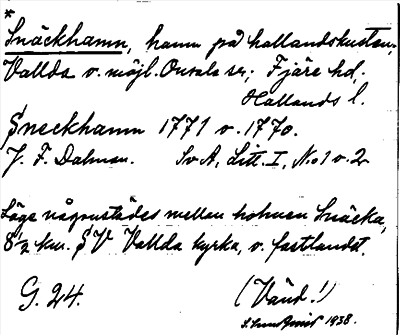 *
Snäckhamn, hamn på hallandskusten,
Vallda o. möjl. Onsala sn; Fjäre hd,
Hallands l.
Sneckhamn 1771 o. 1770.
J. F. Dalman. SvA, Litt. I, No 1 o. 2
Läge någonstädes mellan holmen Snäcka,
5 1/2 km. SV Vallda kyrka, o. fastlandet.
G. 24. (Vänd!)
1938.